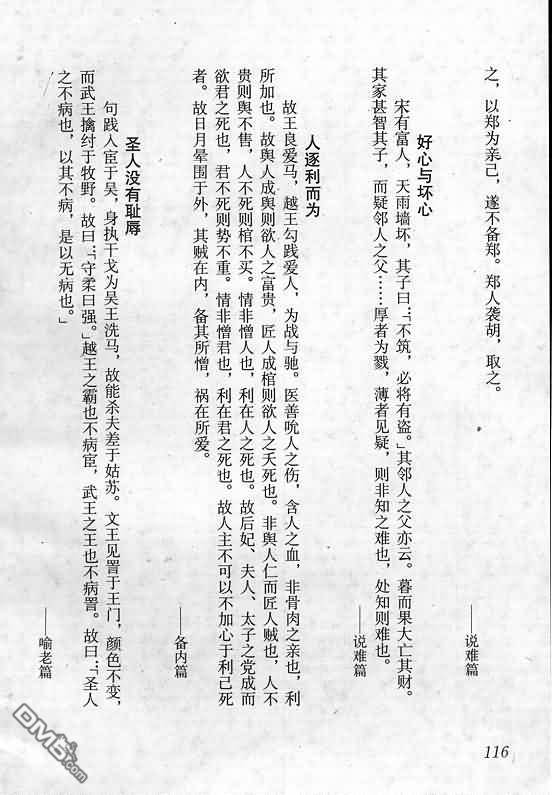 之，以郑为亲己，遂不备郑。郑人袭胡，取之。
——说难篇
好心与坏心
宋有富人，天雨墙坏，其子曰：「不筑，必将有盗。」其邻人之父亦云。暮而果大亡其财。
其家甚智其子，而疑邻人之父……厚者为戮，薄者见疑，则非知之难也，处知则难也。
——说难篇
人逐利而为
故王良爱马，越王勾践爱人，为战与驰。医善吮人之伤，含人之血，非骨肉之亲也，利
所加也。故舆人成舆则欲人之富贵，匠人成棺则欲人之夭死也。非舆人仁而匠人贼也，人不
贵则舆不售，人不死则棺不买。情非憎人也，利在人之死也。故后妃、夫人、太子之党成而
欲君之死也，君不死则势不重。情非憎君也，利在君之死也。故人主不可以不加心于利己死
者。故日月晕围于外，其贼在内，备其所憎，祸在所爱。
——备内篇
圣人没有耻辱
句践入宦于吴，身执干戈为吴王洗马，故能杀夫差于姑苏。文王见詈于王门，颜色不变，
而武王擒纣于牧野。故曰：「守柔曰强。」越王之霸也不病宦，武王之王也不病詈。故曰：「圣人
之不病也，以其不病，是以无病也。」
——喻老篇
116
DM5.com